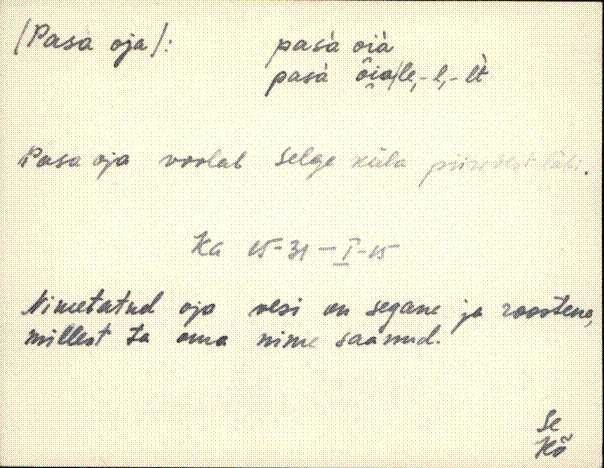 /Pasa oja/: pasà oià
pasà ôia/le,-l,-lt
Pasa oja voolab Selge küla piiridest läbi.
Ka 15-31-I-15
Nimetatud oja vesi on segane ja roostene,
millest ta oma nime saanud.
Se
Kõ